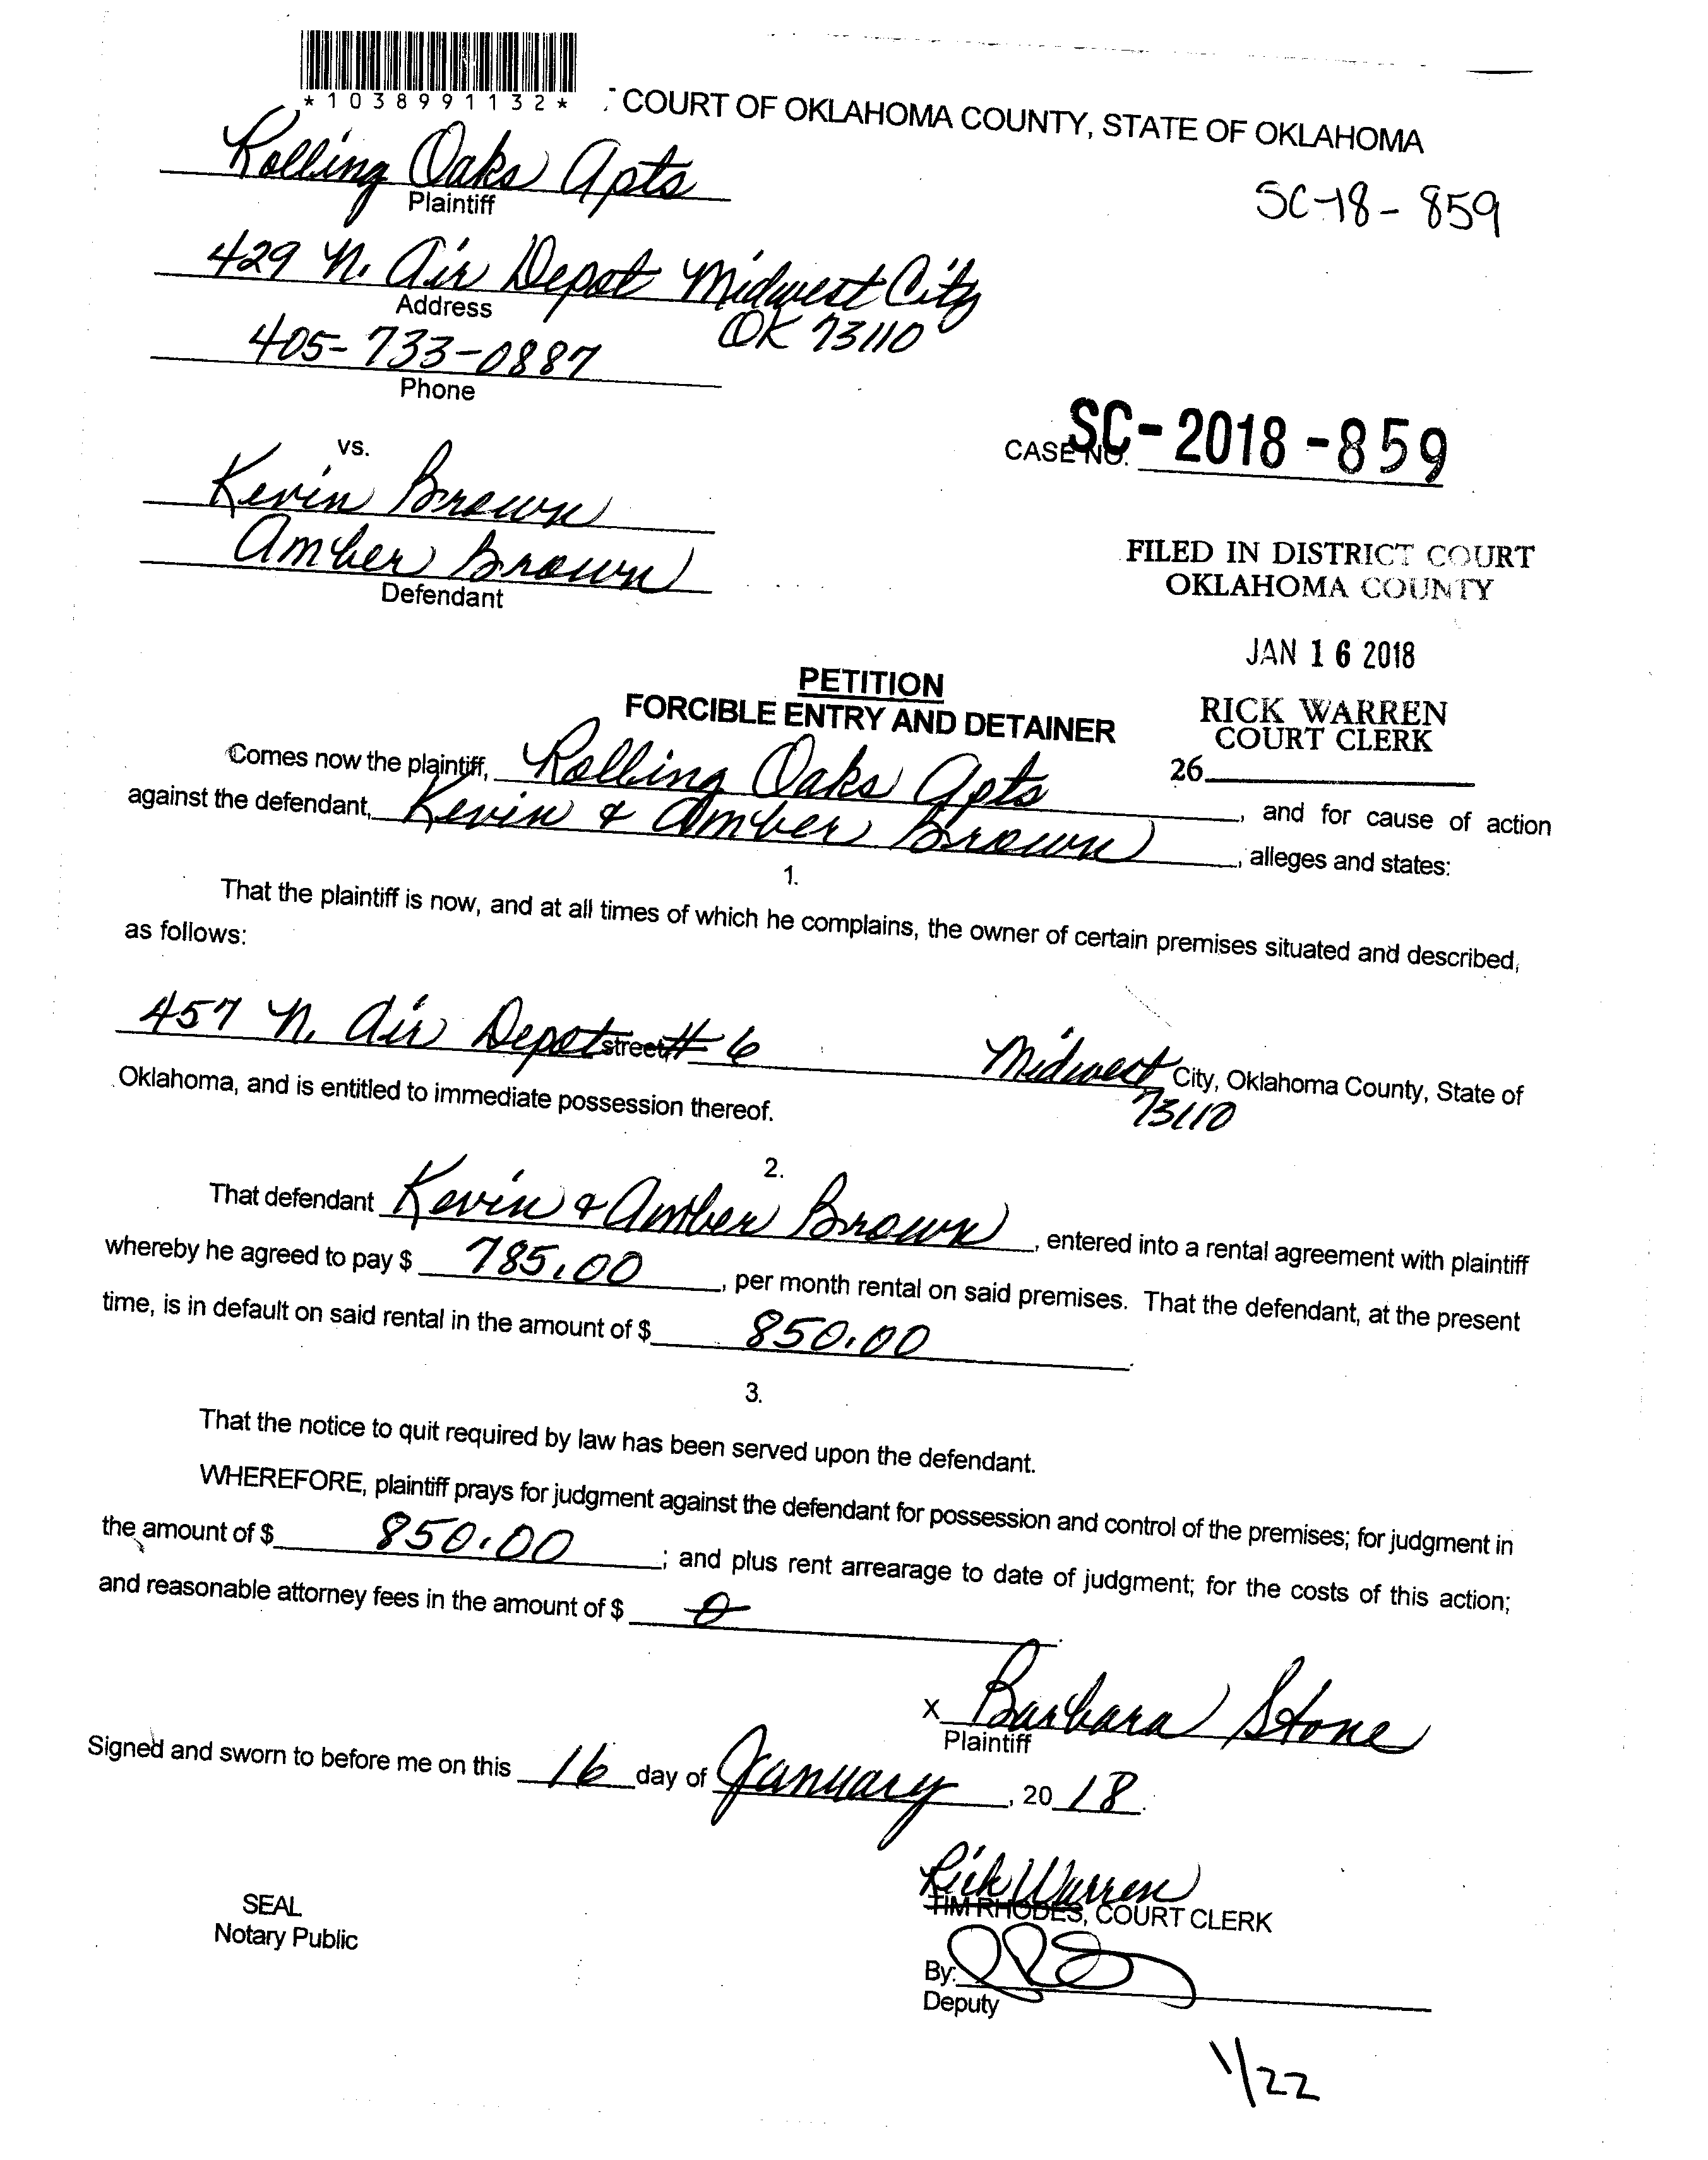 *1038991132*
COURT OF OKLAHOMA COUNTY, STATE OF OKLAHOMA
Rolling Oaks Apts
Plaintiff
SC-18-859
429 N. Air Depot Midwest City
Address
OK 73110
405-733-0887
Phone
vs.
CASE NO. SC-2018-859
Kevin Brown
Amber Brown
Defendant
FILED IN DISTRICT COURT
OKLAHOMA COUNTY
JAN 16 2018
RICK WARREN
COURT CLERK
26
PETITION
FORCIBLE ENTRY AND DETAINER
Comes now the plaintiff, Rolling Oaks Apts, and for cause of action
against the defendant, Kevin & Amber Brown, alleges and states:
1.
That the plaintiff is now, and at all times of which he complains, the owner of certain premises situated and described,
as follows:
457 N. Air Depot street # 6 Midwest City, Oklahoma County, State of
73110
Oklahoma, and is entitled to immediate possession thereof.
2.
That defendant Kevin & Amber Brown, entered into a rental agreement with plaintiff
whereby he agreed to pay $ 785.00, per month rental on said premises. That the defendant, at the present
time, is in default on said rental in the amount of $ 850.00.
3.
That the notice to quit required by law has been served upon the defendant.
WHEREFORE, plaintiff prays for judgment against the defendant for possession and control of the premises; for judgment in
the amount of $ 850.00; and plus rent arrearage to date of judgment; for the costs of this action;
and reasonable attorney fees in the amount of $ 0.
X Barbara Stone
Plaintiff
Signed and sworn to before me on this 16 day of January, 20 18.
Rick Warren
TIM RHODES, COURT CLERK
SEAL
Notary Public
By:
Deputy
1/22